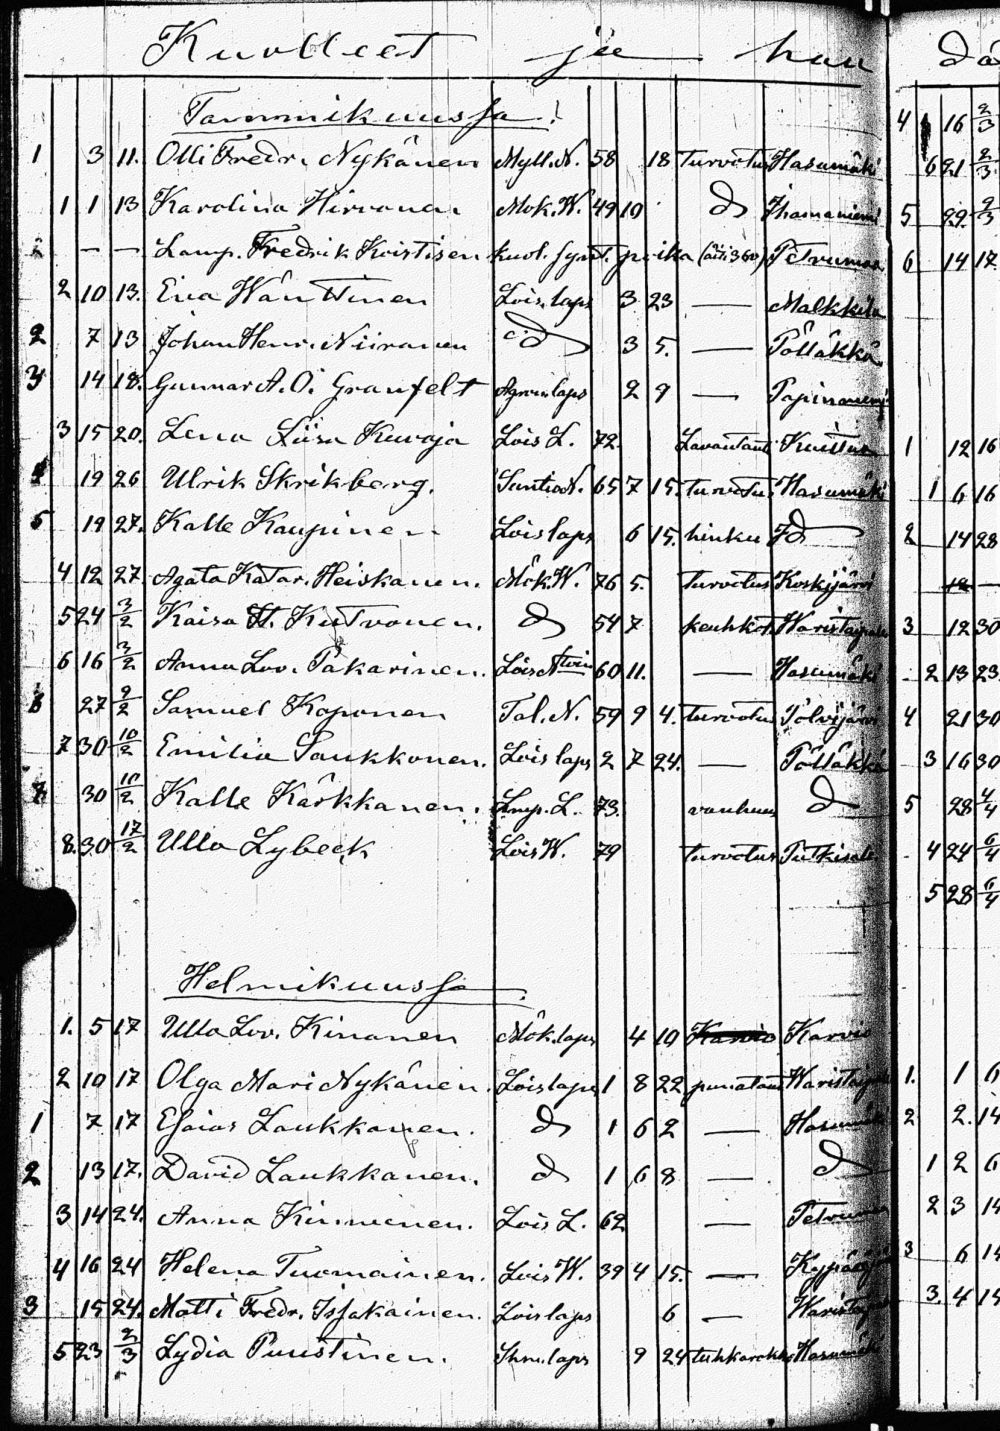 Kuolleet ja hau
Tammikuussa!
1 3 11. Olli Fredr. Nykänen Myll.N. 58 18 turvotus Hasumäki
1 1 13 Karolina Hirvonen Mök.W. 49 10 d
— — Lamp. Fredrik Koistisen kuol. synt. poika (äiti 36) Petrumaa
2 10 13. Eva Wänttinen Lois. laps 3 23 — Malkkila
2 7 13 Johan Henr. Niiranen d 3 5. — Pölläkkä
3 14 18. Gunnar A. O. Granfelt Agron. laps 2 9 — Papinniemi
3 15 20. Lena Liisa Kuvaja Lois L. 72.
4 19 26 Ulrik Skrikberg. Suntio N. 65 7 15. turvotus Hasumäki
5 19 27. Kalle Kaupinen Lois laps 6 15. hinku d
4 12 27 Agata Katar. Heiskanen. Mök.W. 76 5. turvotus Koskijärvi
5 24 2/2 Kaisa H. Kutvonen. d 54 7 keuhkot. Waristaipale
6 16 2/2 Anna Lov. Pakarinen. Lois 60 11. — Hasumäki
6 27 2/2 Samuel Koponen Tal. N. 59 9 4. turvotus Polvijärvi
7 30 10/2 Emilia Laukkonen. Lois laps 2 7 24. — Pölläkkä
7 30 10/2 Kalle Kärkkänen. Lmp. L. 73. vanhuus d
8. 30 17/2 Ulla Lybeck Lois W. 79 turvotus Putkisalo
Helmikuussa.
1. 5 17 Ulla Lov. Kinanen Mök. laps 4 10 Karvio Karvio
2 10 17 Olga Mari Nykänen. Lois laps 1 8 22 punataut Waristaipale
1 7 17 Esaias Laukkanen. d 1 6 2 — Hasumäki
2 13 17. David Laukkanen. d 1 6 8 — d
3 14 24. Anna Kinnunen. Lois L. 62 — Petrumaa
4 16 24 Helena Tuomainen. Lois W. 39 4 15. —
3 15 24. Matti Fredr. Issakainen. Lois laps 6 — Waristaipale
5 23 2/3 Lydia Puustinen. laps 9 24 tuhkarokko Hasumäki
4 16 2/3
6 21 2/3
5 22. 2/3
6 14 17
1 12 16
1 6 16
2 14 28
3 12 30
2 13 23
4 21 30
3 16 30
5 28 4/4
4 24 6/4
5 28 6/4
1. 1 6
2 2. 14
1 2 6
2 3 14
3 6 14
3. 4 14